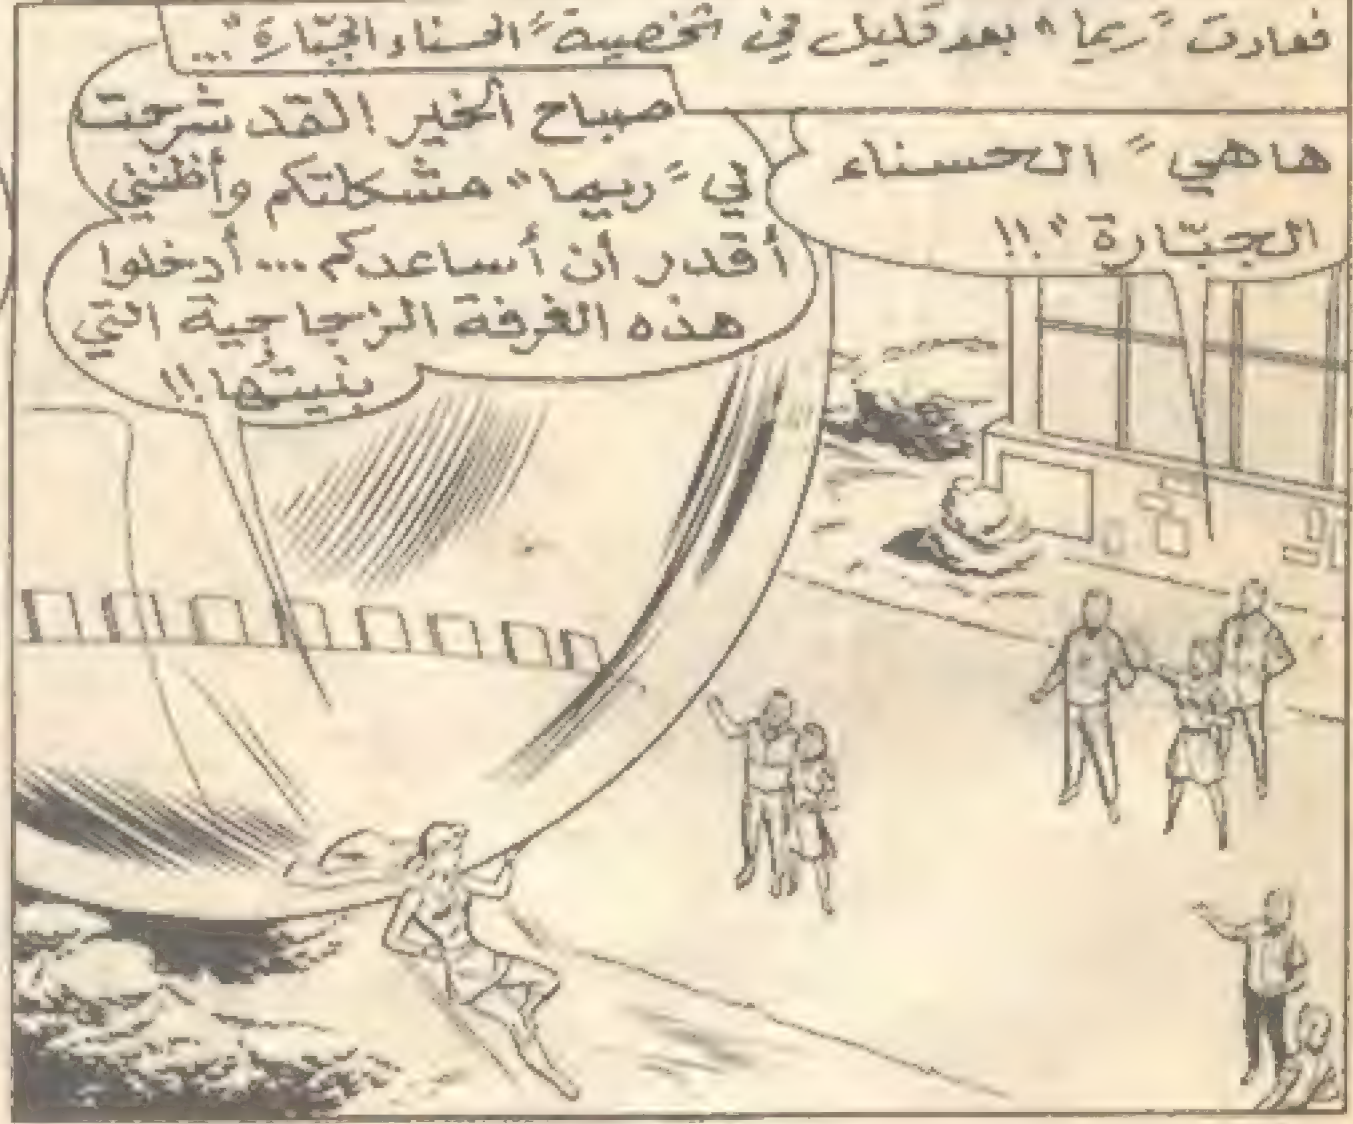 فعادت "ريما" بعد قليل في شخصية "الحسناء الجبّارة"...
ها هي "الحسناء
الجبّارة"!!
صباح الخير! لقد شرحت
لي "ريما" مشكلتكم وأظنني
أقدر أن أساعدكم... أدخلوا
هذه الغرفة الزجاجية التي
بنيتُها!!